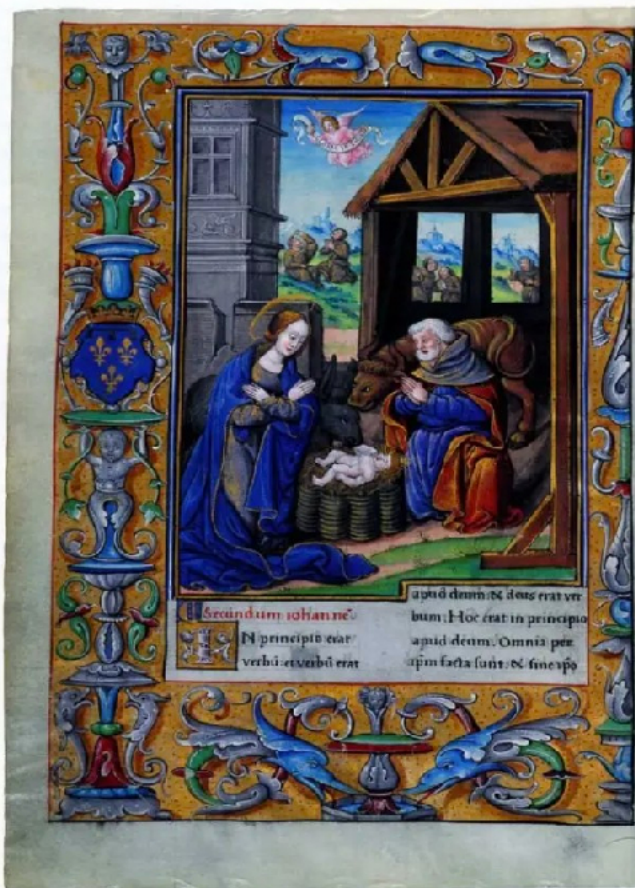 Secundum iohannē
IN principio erat
verbū: et verbū erat
apud deum: & deus erat ver
bum: Hoc erat in principio
apud deum. Omnia per
ip̄m facta sunt: & sine ip̄o